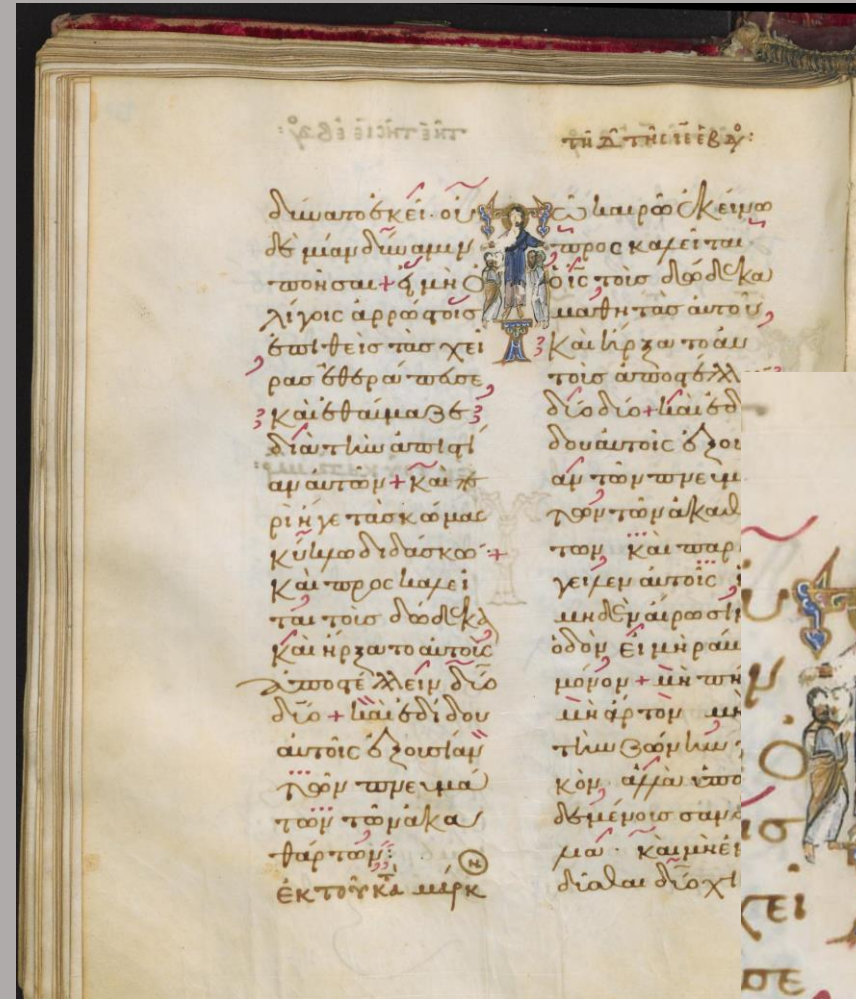 τῇ δ τῆς ιε ἑβδ:
δύναται ἐκεῖ οὐ
δεμίαν δύναμιν
ποιῆσαι + εἰ μὴ ὀ
λίγοις ἀρρώστοις
ἐπιθεὶς τὰς χεῖ
ρας ἐθεράπευσε,
Καὶ ἐθαύμαζε
διὰ τὴν ἀπιστί
αν αὐτῶν + Καὶ πε
ριῆγε τὰς κώμας
κύκλῳ διδάσκων +
Καὶ προσκαλεῖ
ται τοὺς δώδεκα
Καὶ ἤρξατο αὐτοὺς
ἀποστέλλειν δύο
δύο + καὶ ἐδίδου
αὐτοῖς ἐξουσίαν
τῶν πνευμά
των τῶν ἀκα
θάρτων:
ἐκ τοῦ κατὰ μάρκ
Τῷ καιρῷ ἐκείνῳ
προσκαλεῖται
ὁ ις τοὺς δώδεκα
μαθητὰς αὐτοῦ,
Καὶ ἤρξατο αὐ
τοὺς ἀποστέλλ
δύο δύο + καὶ ἐδ
δου αὐτοῖς ἐξου
αν τῶν πνευμ
των τῶν ἀκαθ
των Καὶ παρ
γειλεν αὐτοῖς
μηδὲν αἴρωσιν
ὁδὸν εἰ μὴ ῥάβ
μόνον + μὴ πή
μὴ ἄρτον μὴ
τὴν ζώνην
κόν ἀλλὰ ὑπο
δεμένους σανδ
λια Καὶ μὴ ἐν
δύσασθαι δύο χι